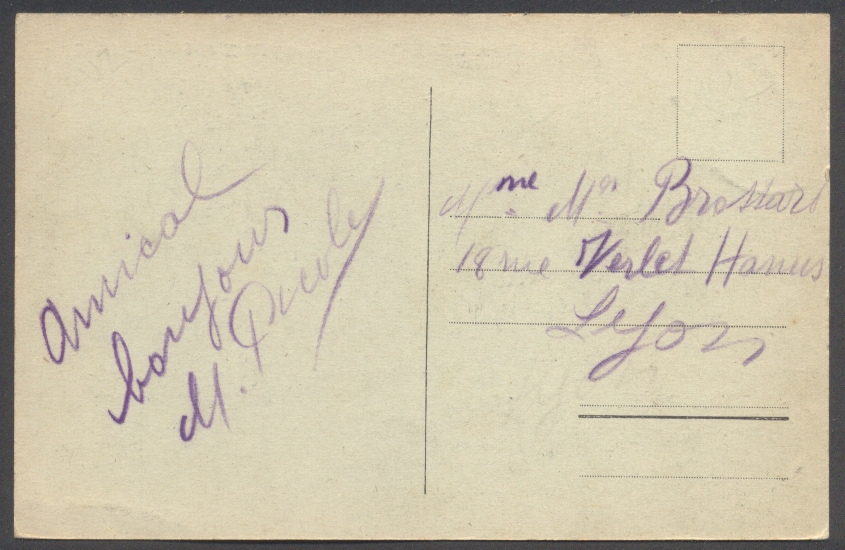 Amical
bonjour
M.
Mme Mr Brossard
18 rue Verlet Hanus
Lyon